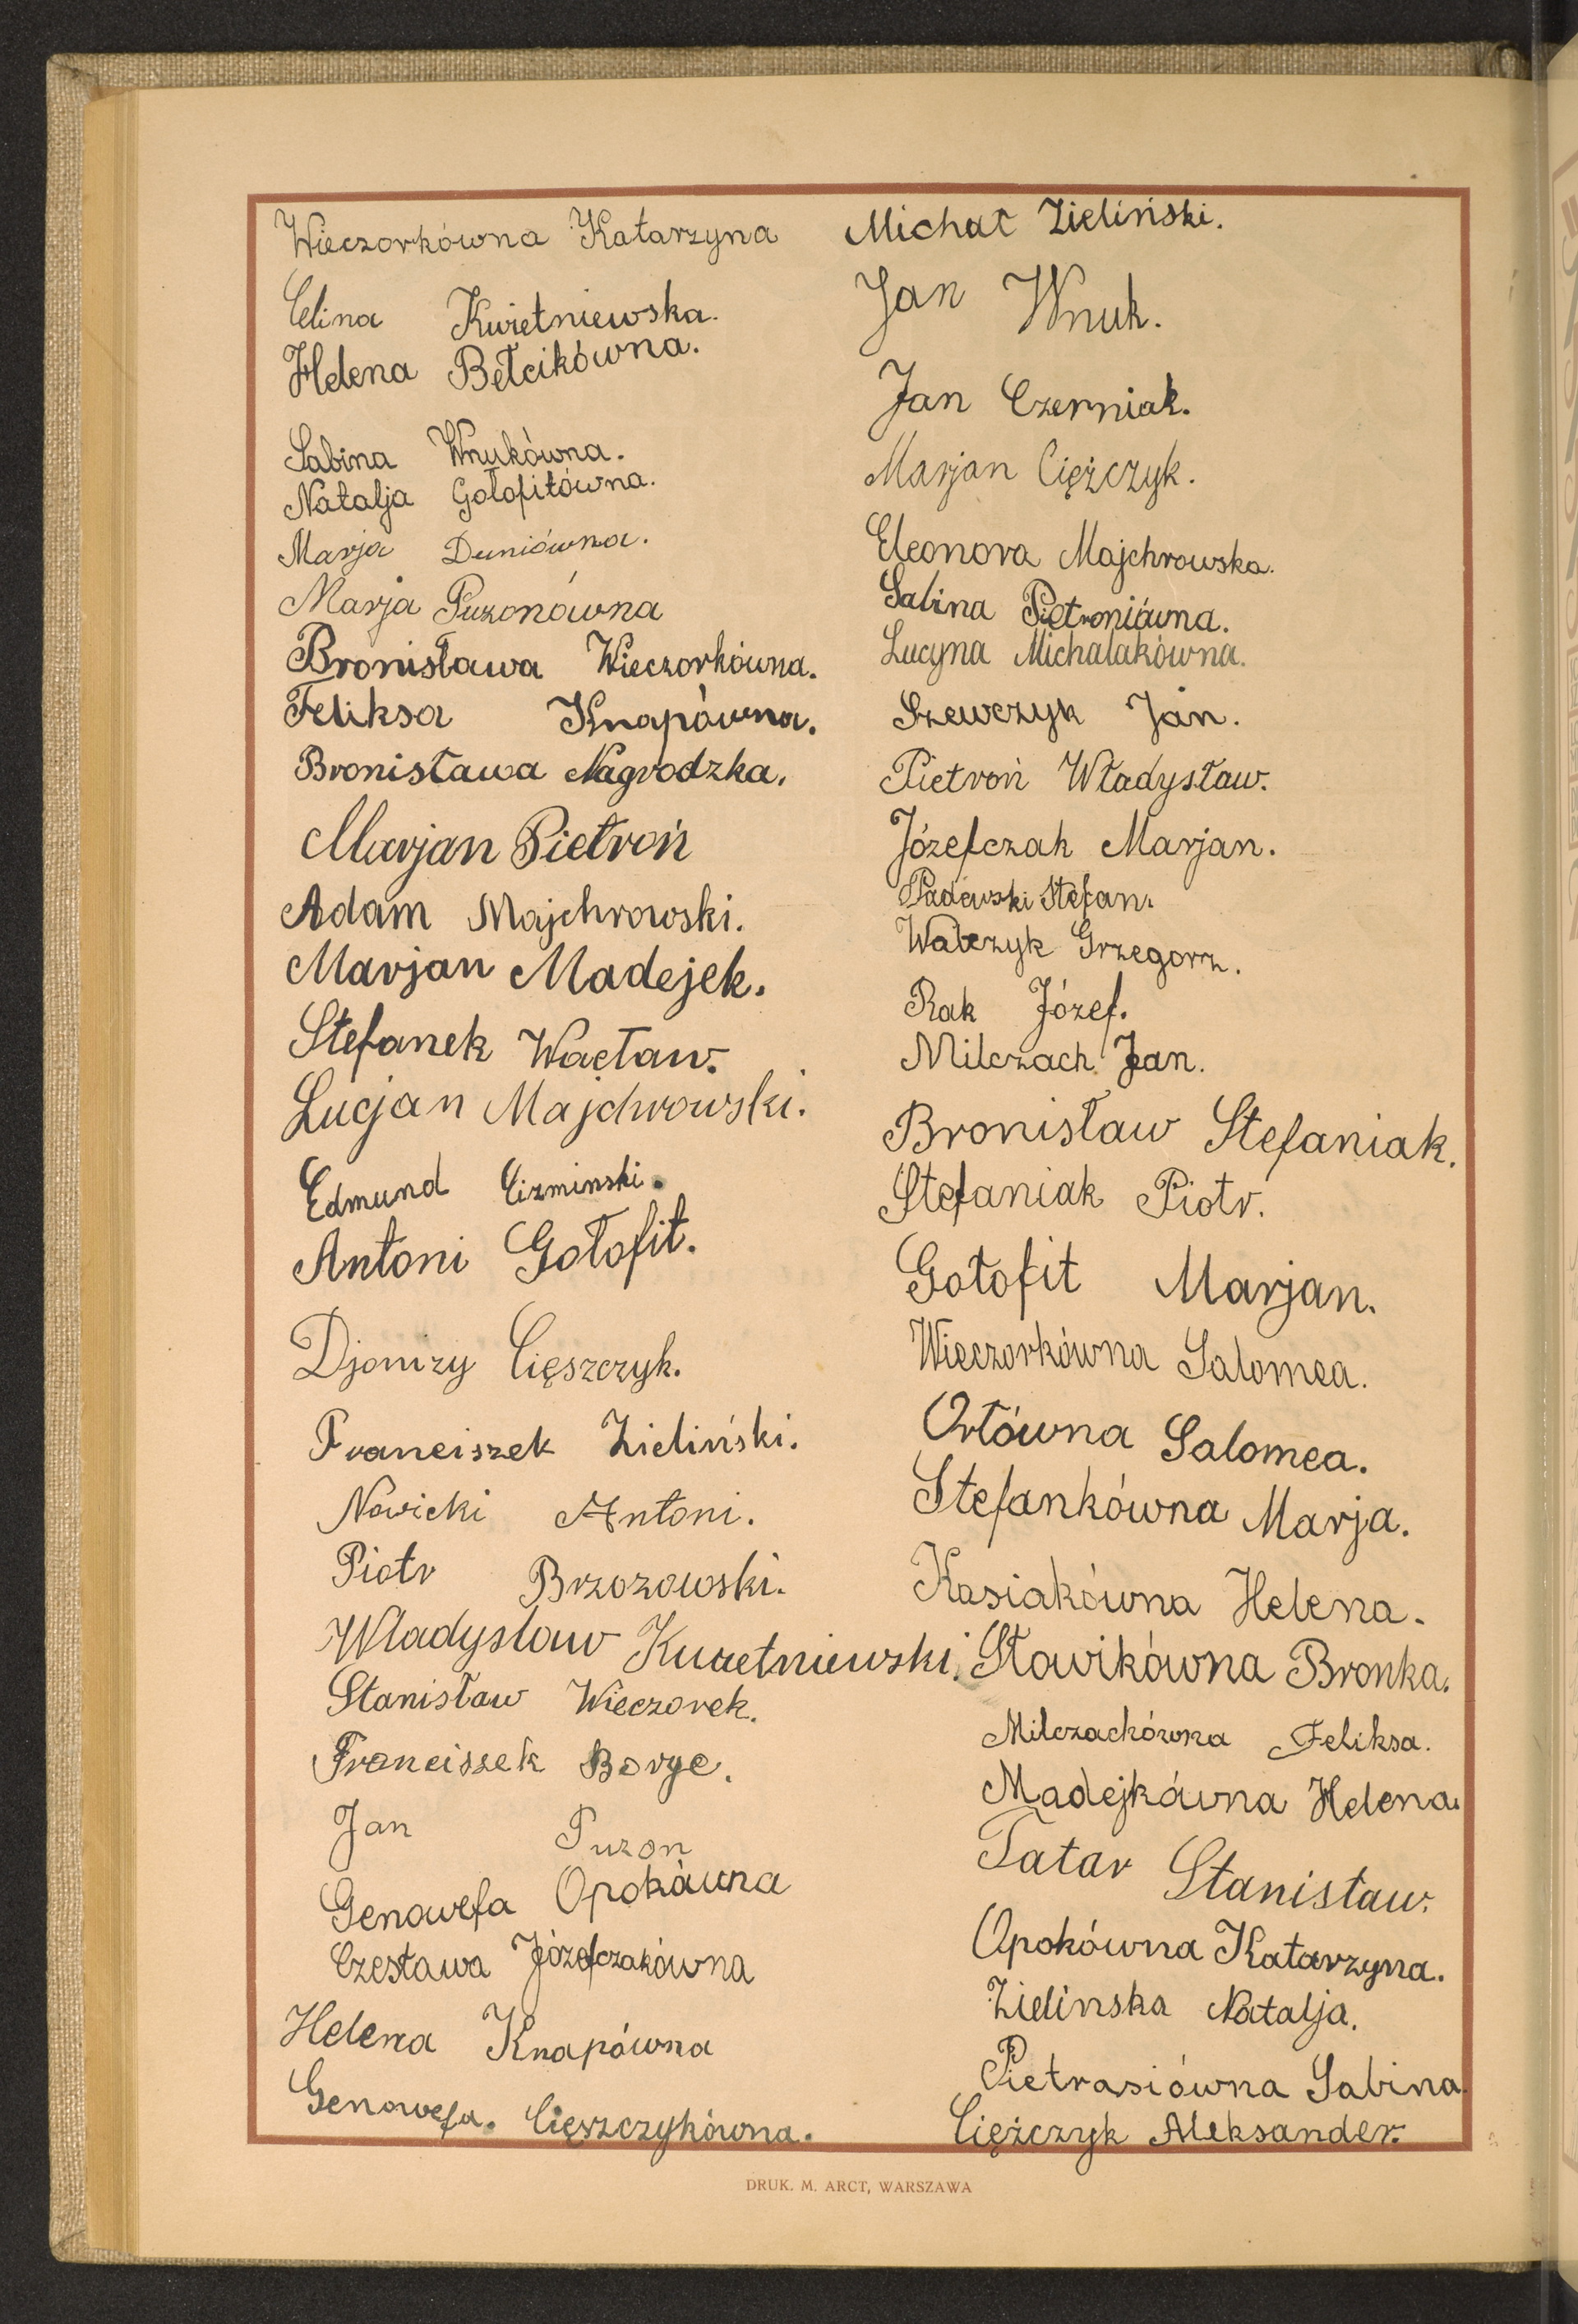 Wieczorkówna Katarzyna
Celina Kwietniewska.
Helena Bełcikówna.
Sabina Wnukówna.
Natalja Gołofitówna.
Marja Duniówna.
Marja Puzonówna
Bronisława Wieczorkówna.
Feliksa Knapówna.
Bronisława Nagrodzka.
Marjan Pietroń
Adam Majchrowski.
Marjan Madejek.
Stefanek Wacław.
Lucjan Majchrowski.
Edmund Cizminski.
Antoni Gołofit.
Djonizy Cięszczyk.
Franciszek Zieliński.
Nowicki Antoni.
Piotr Brzozowski.
Władysław Kwietniewski.
Stanisław Wieczorek.
Franciszek Boryc.
Jan Puzon
Genowefa Opokówna
Czesława Józefczakówna
Helena Knapówna
Genowefa. Cięszczykówna.
Michał Zieliński.
Jan Wnuk.
Jan Czerniak.
Marjan Ciężczyk.
Eleonora Majchrowska.
Sabina Pietroniówna.
Lucyna Michalakówna.
Szewczyk Jan.
Pietroń Władysław.
Józefczak Marjan.
Padewski Stefan.
Walczyk Grzegorz.
Rak Józef.
Milczach Jan.
Bronisław Stefaniak.
Stefaniak Piotr.
Gołofit Marjan.
Wieczorkówna Salomea.
Orłówna Salomea.
Stefankówna Marja.
Kasiakówna Helena.
Sławikówna Bronka.
Milczachówna Feliksa.
Madejkówna Helena.
Tatar Stanisław.
Opokówna Katarzyna.
Zielinska Natalja.
Pietrasiówna Sabina.
Ciężczyk Aleksander.
DRUK. M. ARCT, WARSZAWA